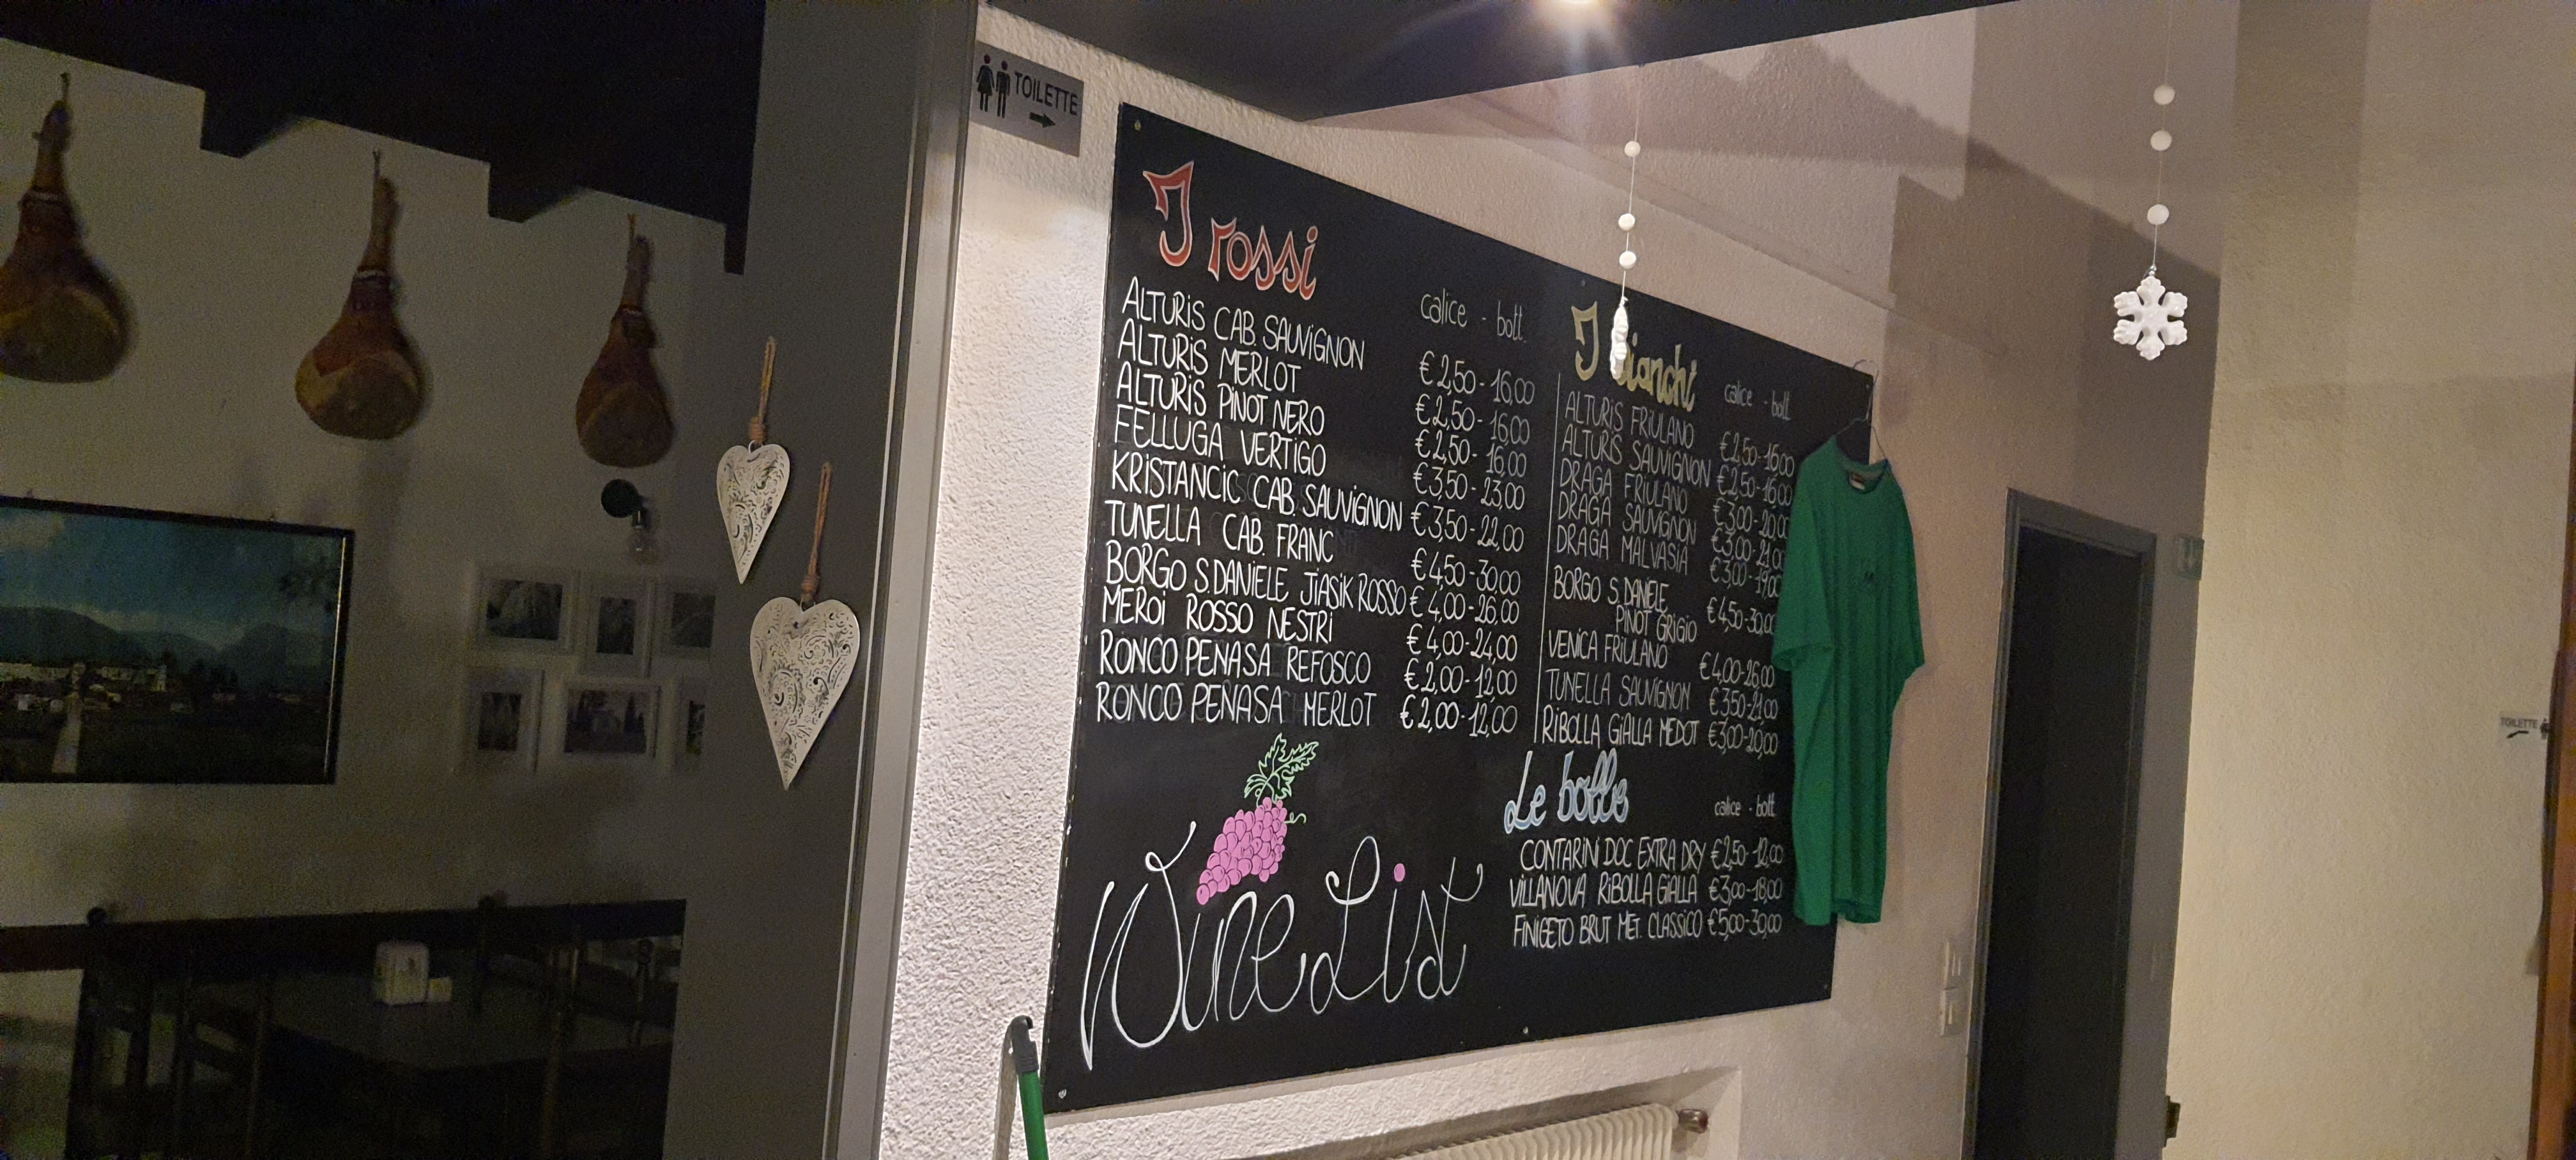 TOILETTE
I rossi
calice - bott.
ALTURIS CAB. SAUVIGNON € 2,50 - 16,00
ALTURIS MERLOT € 2,50 - 16,00
ALTURIS PINOT NERO € 2,50 - 16,00
FELLUGA VERTIGO € 3,50 - 23,00
KRISTANCIC CAB. SAUVIGNON € 3,50 - 22,00
TUNELLA CAB. FRANC € 4,50 - 30,00
BORGO S. DANIELE JIASIK ROSSO € 4,00 - 26,00
MEROI ROSSO NESTRI € 4,00 - 24,00
RONCO PENASA REFOSCO € 2,00 - 12,00
RONCO PENASA MERLOT € 2,00 - 12,00
Wine List
I bianchi
calice - bott.
ALTURIS FRIULANO € 2,50 - 16,00
ALTURIS SAUVIGNON € 2,50 - 16,00
DRAGA FRIULANO € 3,00 - 20,00
DRAGA SAUVIGNON € 3,00 - 21,00
DRAGA MALVASIA € 3,00 - 19,00
BORGO S. DANIELE
PINOT GRIGIO € 4,50 - 30,00
VENICA FRIULANO € 4,00 - 26,00
TUNELLA SAUVIGNON € 3,50 - 21,00
RIBOLLA GIALLA MEDOT € 3,00 - 20,00
Le bolle
calice - bott.
CONTARINI DOC EXTRA DRY € 2,50 - 12,00
VILLANOVA RIBOLLA GIALLA € 3,00 - 18,00
FINIGETO BRUT MET. CLASSICO € 5,00 - 30,00
TOILETTE